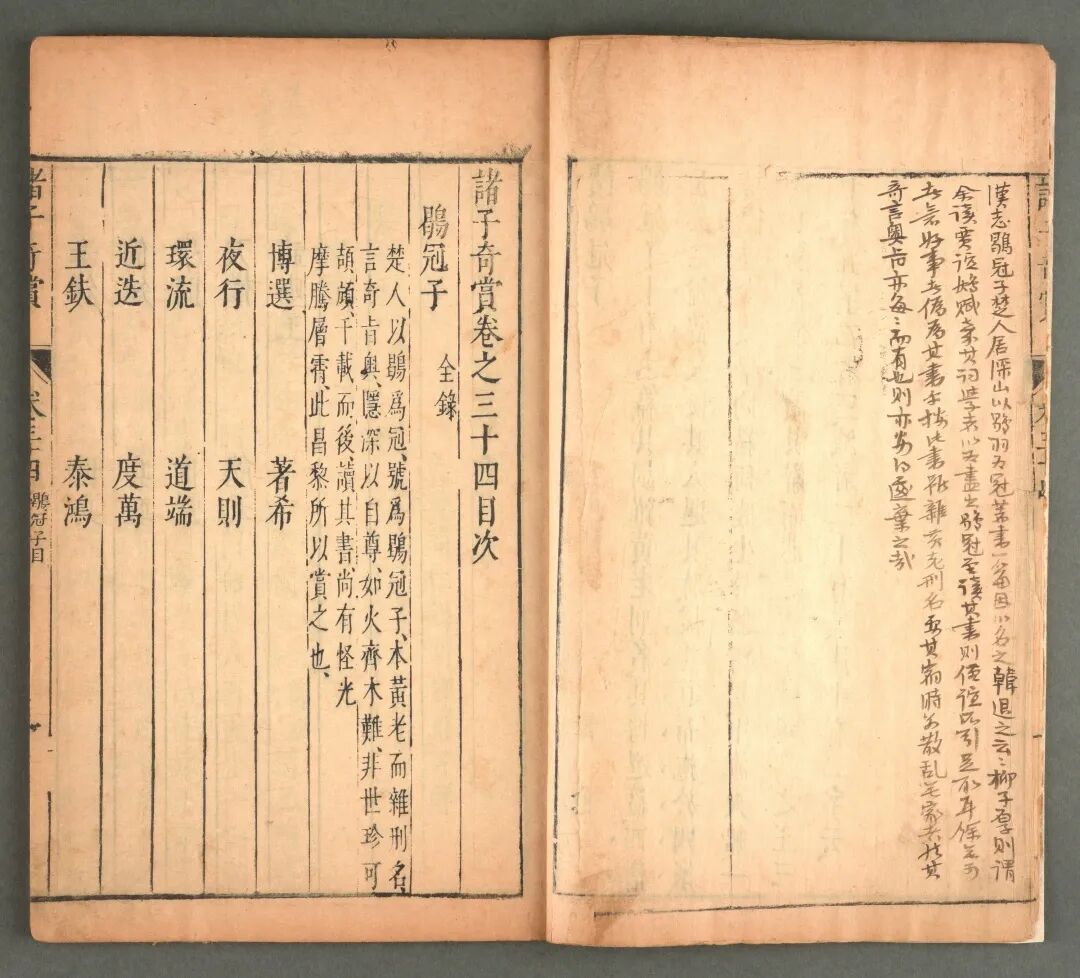 漢志鶡冠子楚人居深山以鶡羽為冠著書一篇因以名之韓退之云云柳子厚則謂
余讀賈誼鵩賦嘉其詞學者以為盡出鶡冠至讀其書則信誼所引是取耳餘無可
者意好事者偽為其書
奇言奧旨亦每每而有也則亦安得遂棄之哉
諸子奇賞卷之三十四目次
鶡冠子 全錄
楚人以鶡為冠、號為鶡冠子、本黃老而雜刑名、
言奇旨奧、隱深以自尊、如火齊木難、非世珍可
頡頏、千載而後讀其書、尚有怪光
摩騰層霄、此昌黎所以賞之也、
博選 著希
夜行 天則
環流 道端
近迭 度萬
王鈇 泰鴻
諸子奇賞 卷三十四 鶡冠子目